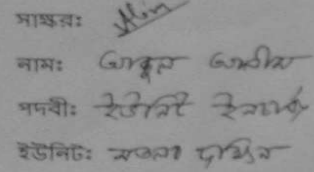 সাক্ষর:
নাম: আব্দুল আলীম
পদবী: ইউনিট ইনচার্জ
ইউনিট: মতলব দক্ষিন